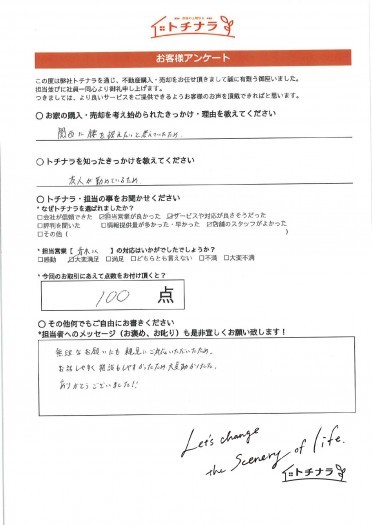 トチナラ
お客様アンケート
この度は弊社トチナラを通じ、不動産購入・売却をお任せ頂きまして誠に有難う御座いました。
担当並びに社員一同心より御礼申し上げます。
つきましては、より良いサービスをご提供できるようお客様のお声を頂戴できればと思います。
○ お家の購入・売却を考え始められたきっかけ・理由を教えてください
関西に
○ トチナラを知ったきっかけを教えてください
友人が勤めているため
○ トチナラ・担当の事をお聞かせください
*なぜトチナラを選ばれましたか?
□会社が信頼できた ☑担当営業が良かった ☑サービスや対応が良さそうだった
□評判を聞いた □情報提供量が多かった・早かった ☑店舗のスタッフがよかった
□その他 (
*担当営業【 】の対応はいかがでしたでしょうか?
□感動 ☑大変満足 □満足 □どちらとも言えない □不満 □大変不満
*今回のお取引にあえて点数をお付け頂くと?
100 点
○ その他何でもご自由にお書きください
*担当者へのメッセージ(お褒め、お叱り)も是非宜しくお願い致します!
無理なお願いにも親身にご対応いただいたため、
お話しやすく相談もしやすかったため大変助かりました。
ありがとうございました!!
Let's change
the Scenery of life.
トチナラ